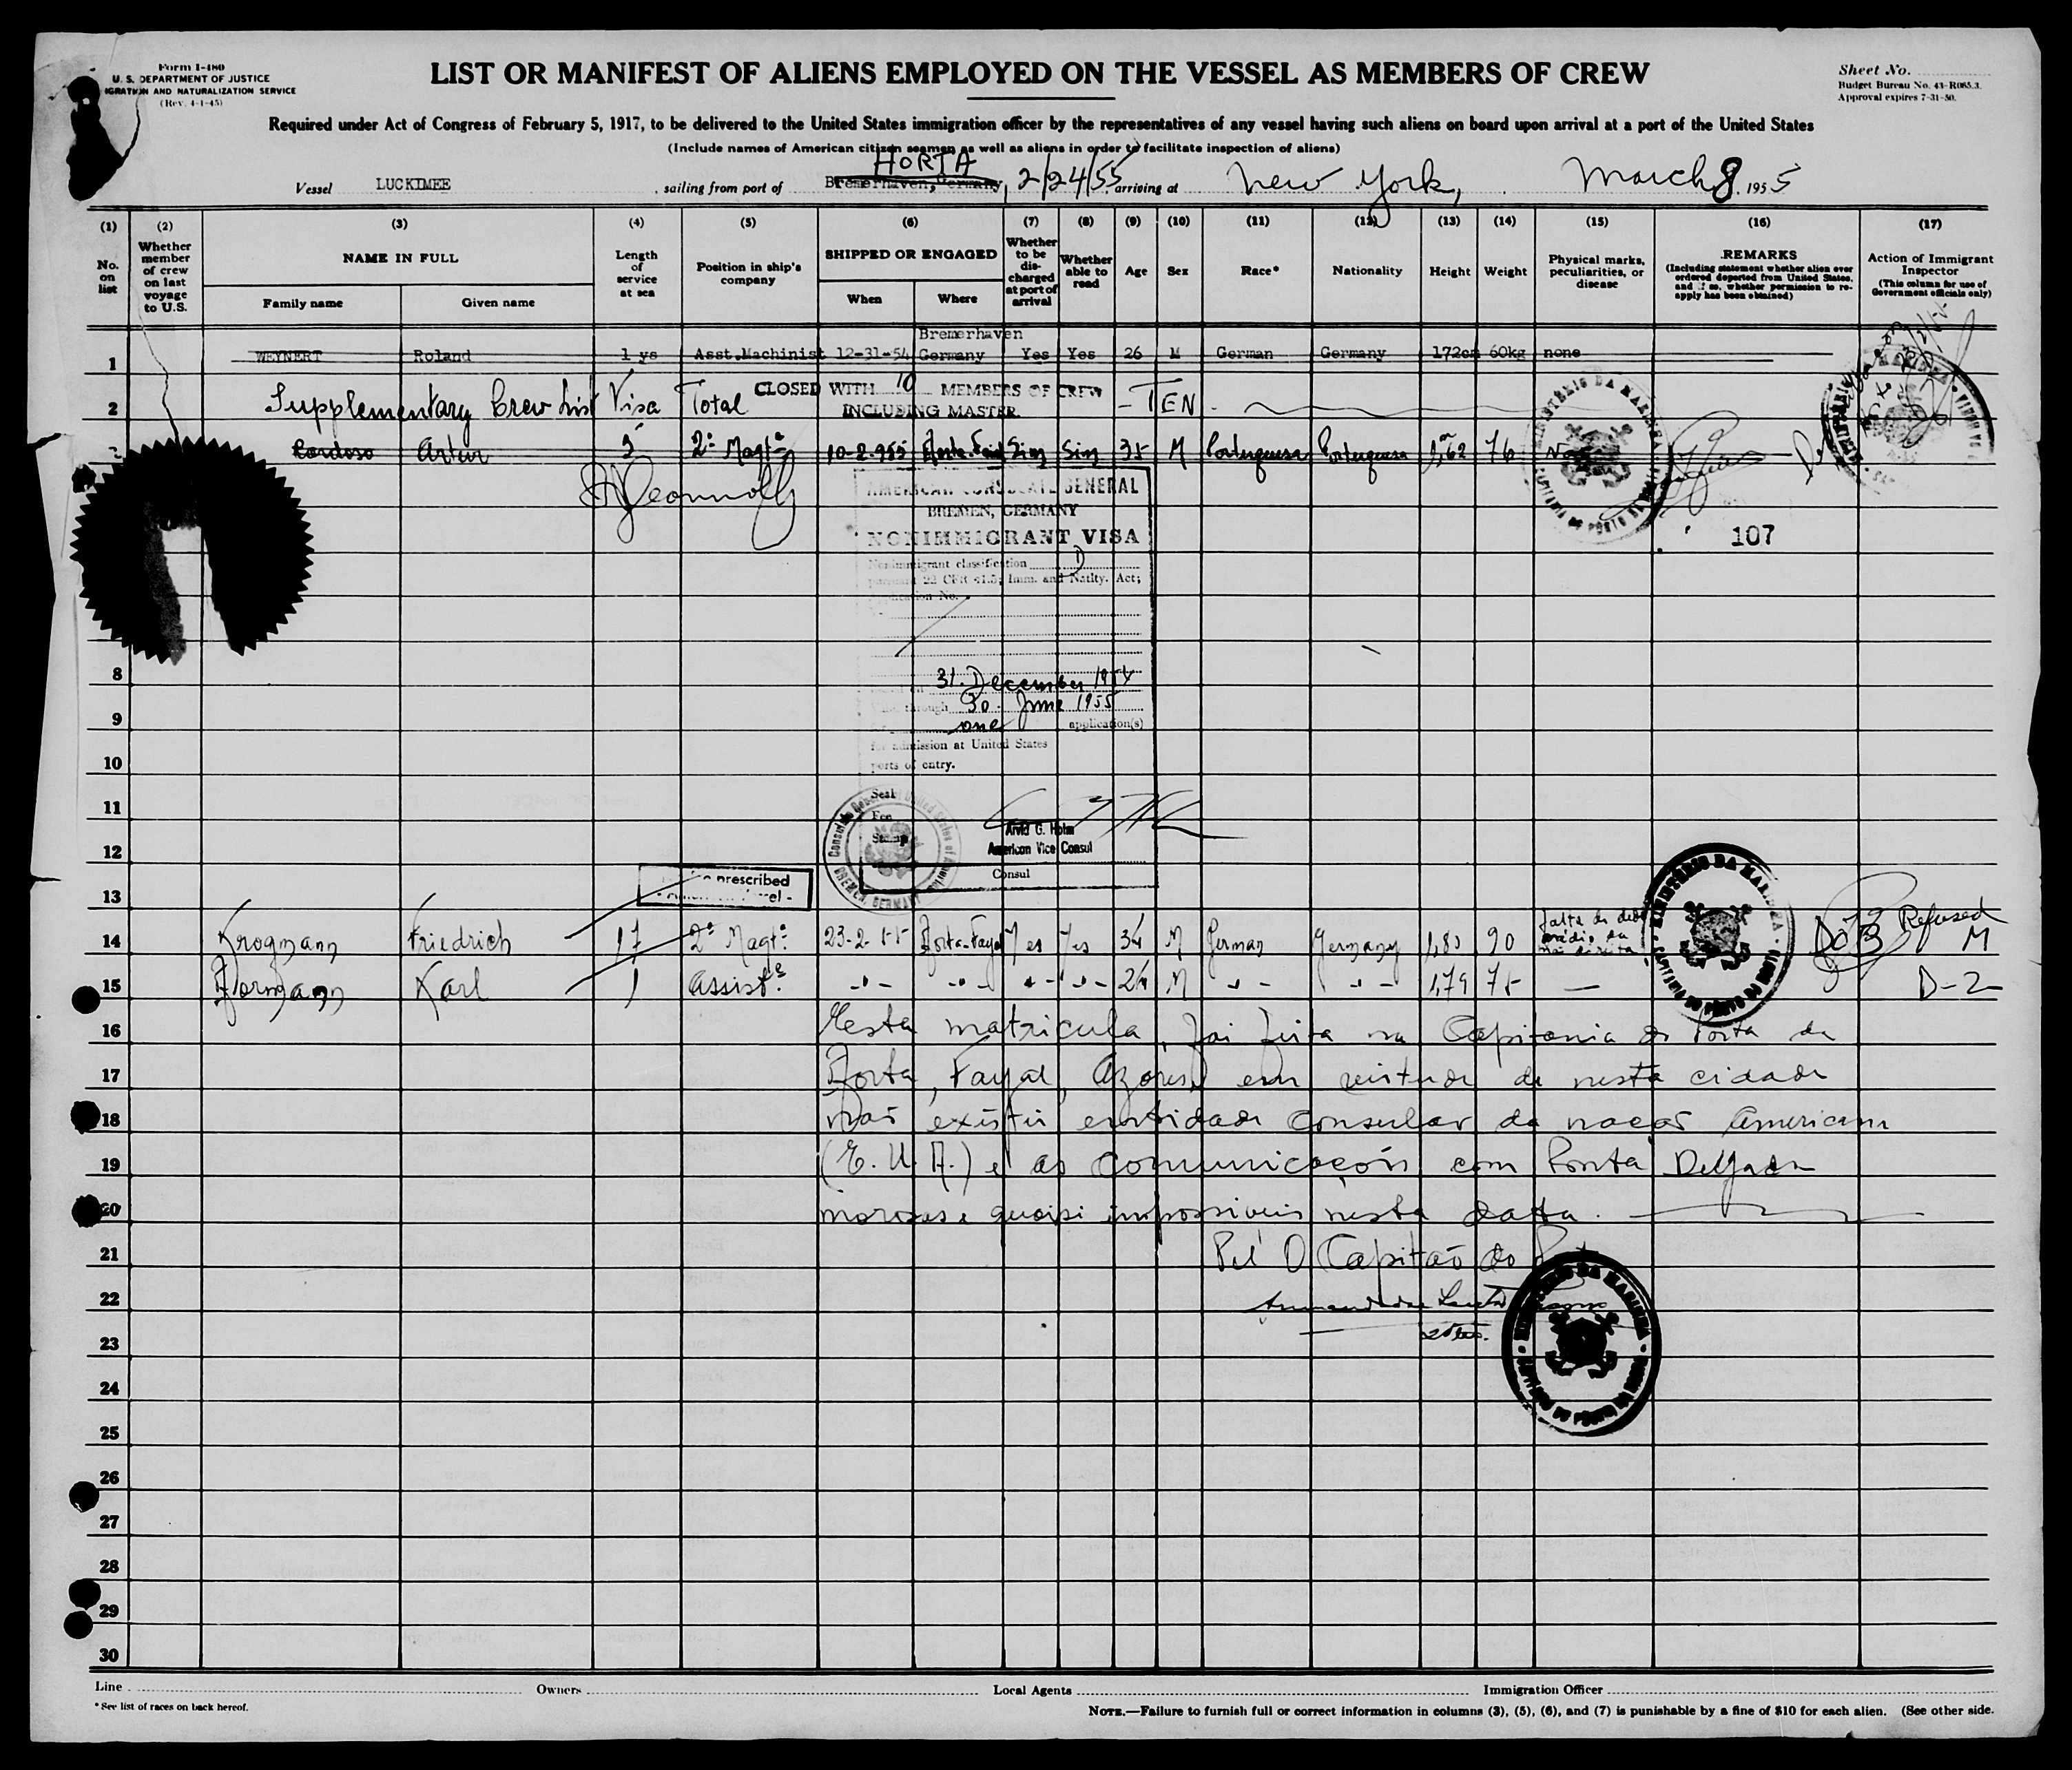 Form I-480
U. S. DEPARTMENT OF JUSTICE
IGRATION AND NATURALIZATION SERVICE
(Rev. 4-1-45)
LIST OR MANIFEST OF ALIENS EMPLOYED ON THE VESSEL AS MEMBERS OF CREW
Sheet No.
Budget Bureau No. 43-R065.3.
Approval expires 7-31-50.
Required under Act of Congress of February 5, 1917, to be delivered to the United States immigration officer by the representatives of any vessel having such aliens on board upon arrival at a port of the United States
(Include names of American citizen seamen as well as aliens in order to facilitate inspection of aliens)
HORTA
Vessel LUCKIMEE , sailing from port of Bremerhaven, Germany, 2/24/55 arriving at New York, March 8, 1955
(1) (2) (3) (4) (5) (6) (7) (8) (9) (10) (11) (12) (13) (14) (15) (16) (17)
No. on list
Whether member of crew on last voyage to U.S.
NAME IN FULL
Family name Given name
Length of service at sea
Position in ship's company
SHIPPED OR ENGAGED
When Where
Whether to be discharged at port of arrival
Whether able to read
Age Sex Race* Nationality Height Weight
Physical marks, peculiarities, or disease
REMARKS
(Including statement whether alien ever ordered deported from United States, and if so, whether permission to reapply has been obtained)
Action of Immigrant Inspector
(This column for use of Government officials only)
Bremerhaven
1 WEYNERT Roland 1 ys Asst.Machinist 12-31-54 Germany Yes Yes 26 M German Germany 172cm 60kg none
2 Supplementary Crew List Visa Total CLOSED WITH 10 MEMBERS OF CREW - TEN
INCLUDING MASTER.
Cardoso Artur 5 2º Maqtª 10-2-955 Horta-Faial Sim Sim 35 M Portuguesa Portuguesa 1,62 76
AMERICAN CONSULATE GENERAL
BREMEN, GERMANY
NONIMMIGRANT VISA
107
Nonimmigrant classification D
22 CFR 41.5; Imm. and Natlty. Act;
Application No.
8
31. December 1954
through 30. June 1955
9
one application(s)
for admission at United States
10
ports of entry.
11
Seal
Fee
Stamp
Arvid G. Holm
American Vice Consul
12
Consul
prescribed
13
14 Krogmann Friedrich 17 2º Maqtª 23-2-55 Horta-Fayal Yes Yes 34 M German Germany 1,83 90 Refused M
15 Hormann Karl 1 Assistº -"- -"- -"- -"- 24 M -"- -"- 1,79 75 — D-2
MINISTÉRIO DA MARINHA
CAPITANIA DO PORTO DA HORTA
16 Esta matricula, foi feita na Capitania do Porto da
17 Horta, Fayal, Azores, em virtude de nesta cidade
18 não existir entidade consular da nação Americana
19 (E. U. A.) e as comunicações com Ponta Delgada
20 morosas e quasi impossiveis nesta data.
21 Pel' O Capitão do Porto
22
23
24
25
26
27
28
29
30
Line Owners Local Agents Immigration Officer
* See list of races on back hereof.
NOTE.—Failure to furnish full or correct information in columns (3), (5), (6), and (7) is punishable by a fine of $10 for each alien. (See other side.